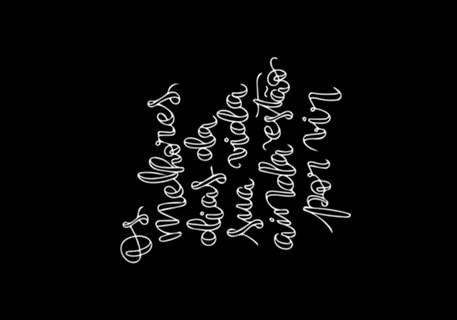 Os
melhores
dias da
sua vida
ainda estão
por vir